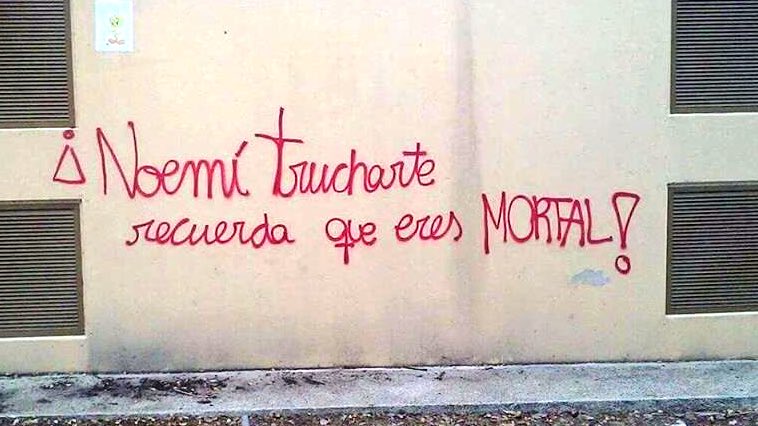 ¡Noemí trucharte
recuerda que eres MORTAL!